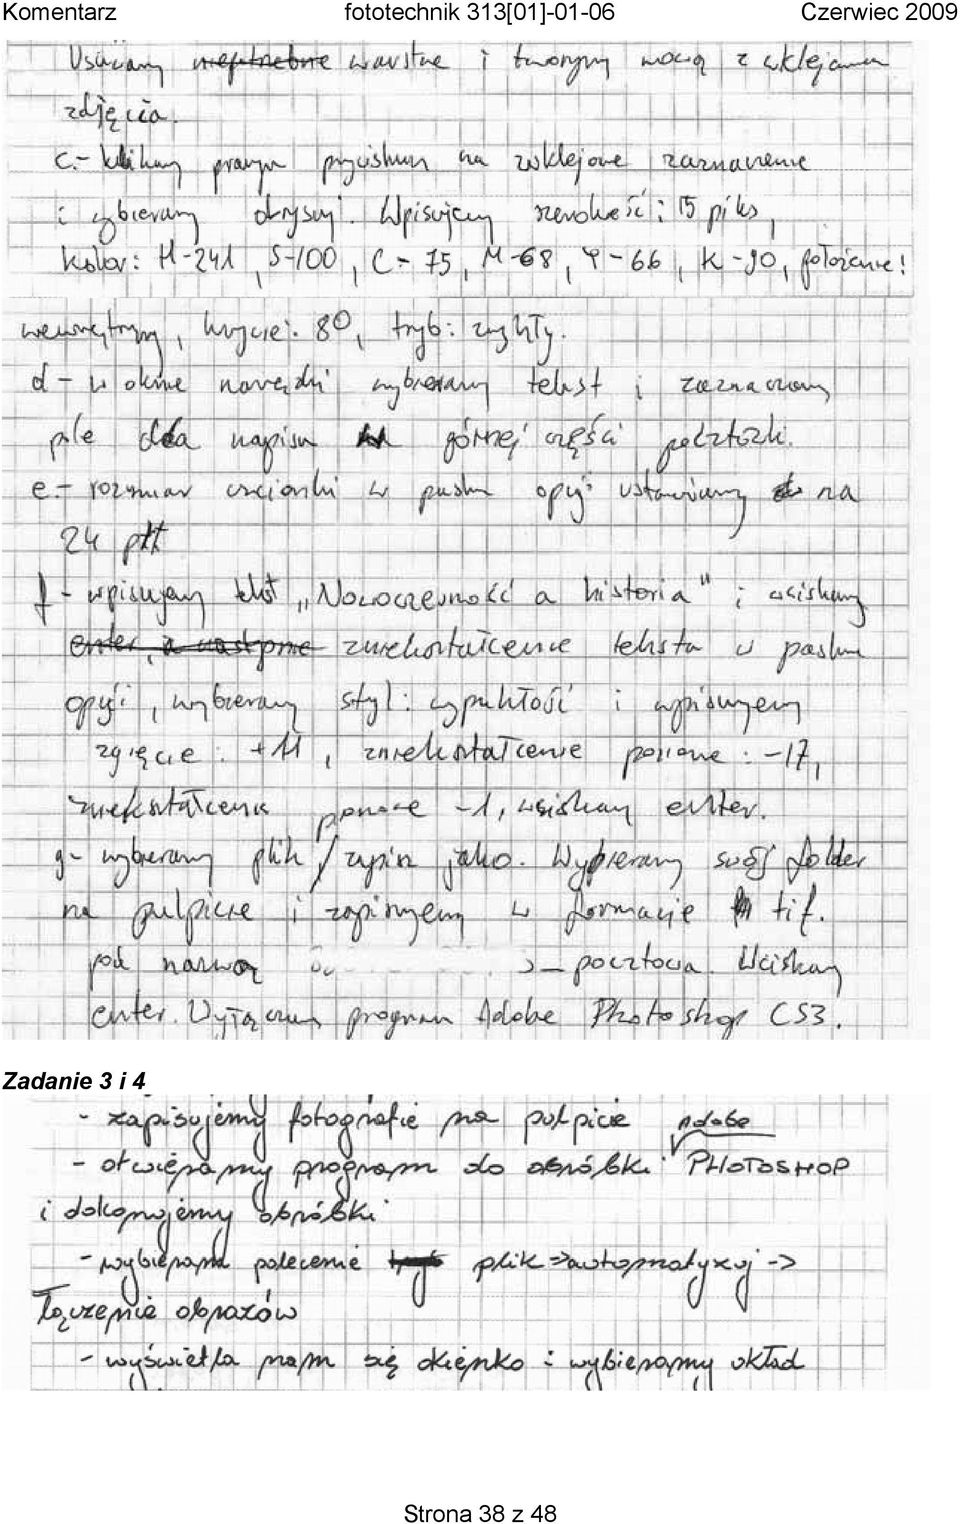 Komentarz fototechnik 313[01]-01-06 Czerwiec 2009
Usuwamy niepotrzebne warstwę i tworzymy nową z wklejania
zdjęcia.
c.- klikamy prawym przyciskum na wklejone zaznaczenie
i wybieramy obrysuj. Wpisujemy szerokość: 15 piks,
kolor: H-241, S-100, C-75, M-68, Y-66, K-90, położenie:
wewnętrzny, krycie: 80, tryb: zwykły.
d- w oknie narzędzi wybieramy tekst i zaznaczamy
pole dla napisu górnej części pocztówki.
e.- rozmiar czcionki w pasku opcji ustawiamy na
24 pkt
f- wpisujemy tekst „Nowoczesność a historia" i wciskamy
enter, a następnie zniekształcenie teksta w pasku
opcji, wybieramy styl: wypukłość i wpisujemy
zgięcie: +11, zniekształcenie poziome: -17,
zniekształcenie pionowe -1, wciskamy enter.
g- wybieramy plik / zapisz jako. Wybieramy swój folder
na pulpicie i zapisujemy w formacie tif.
pod nazwą _pocztowa. Wciskamy
enter. Wyłączamy program Adobe Photoshop CS3.
Zadanie 3 i 4
- zapisujemy fotografie na pulpicie Adobe
- otwieramy program do obróbki PHOTOSHOP
i dokonujemy obróbki
- wybieramy polecenie plik -> automatyzuj ->
Łączenie obrazów
- wyświetla nam się okienko i wybieramy układ
Strona 38 z 48